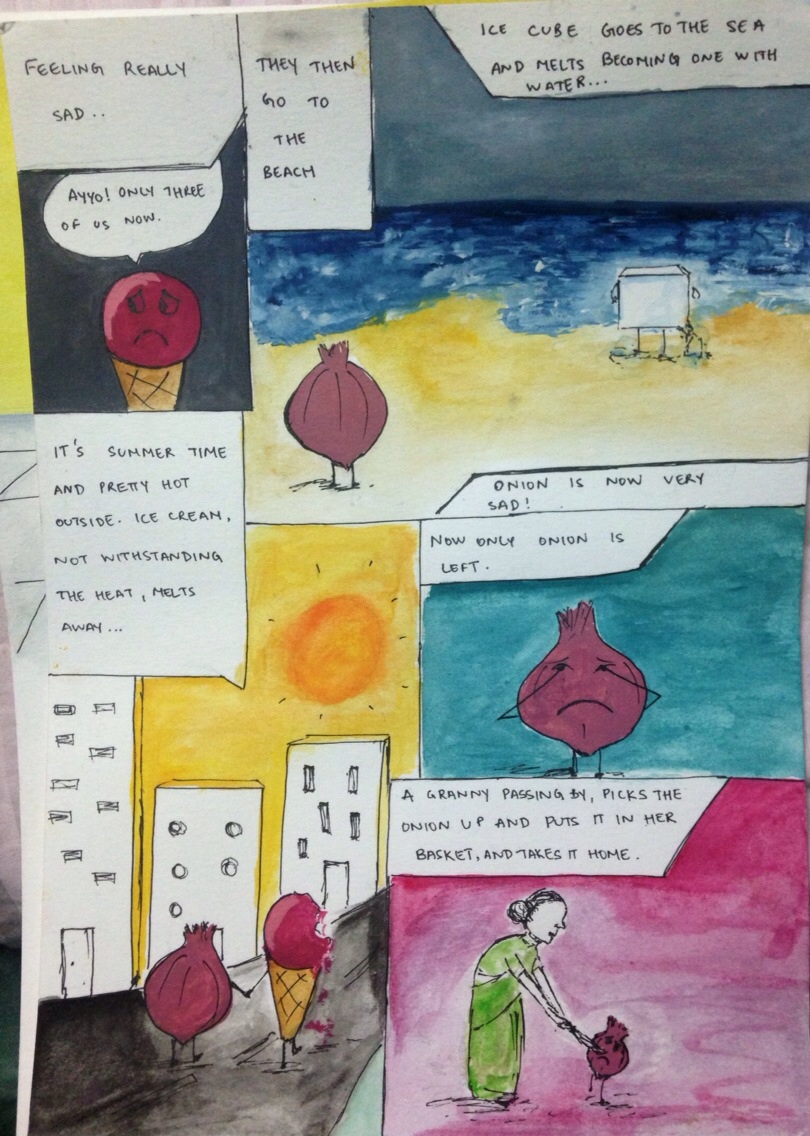 FEELING REALLY
SAD..
AYYO! ONLY THREE
OF US NOW.
THEY THEN
GO TO
THE
BEACH
ICE CUBE GOES TO THE SEA
AND MELTS BECOMING ONE WITH
WATER...
ONION IS NOW VERY
SAD!
IT'S SUMMER TIME
AND PRETTY HOT
OUTSIDE. ICE CREAM,
NOT WITHSTANDING
THE HEAT, MELTS
AWAY...
NOW ONLY ONION IS
LEFT.
A GRANNY PASSING BY, PICKS THE
ONION UP AND PUTS IT IN HER
BASKET, AND TAKES IT HOME.